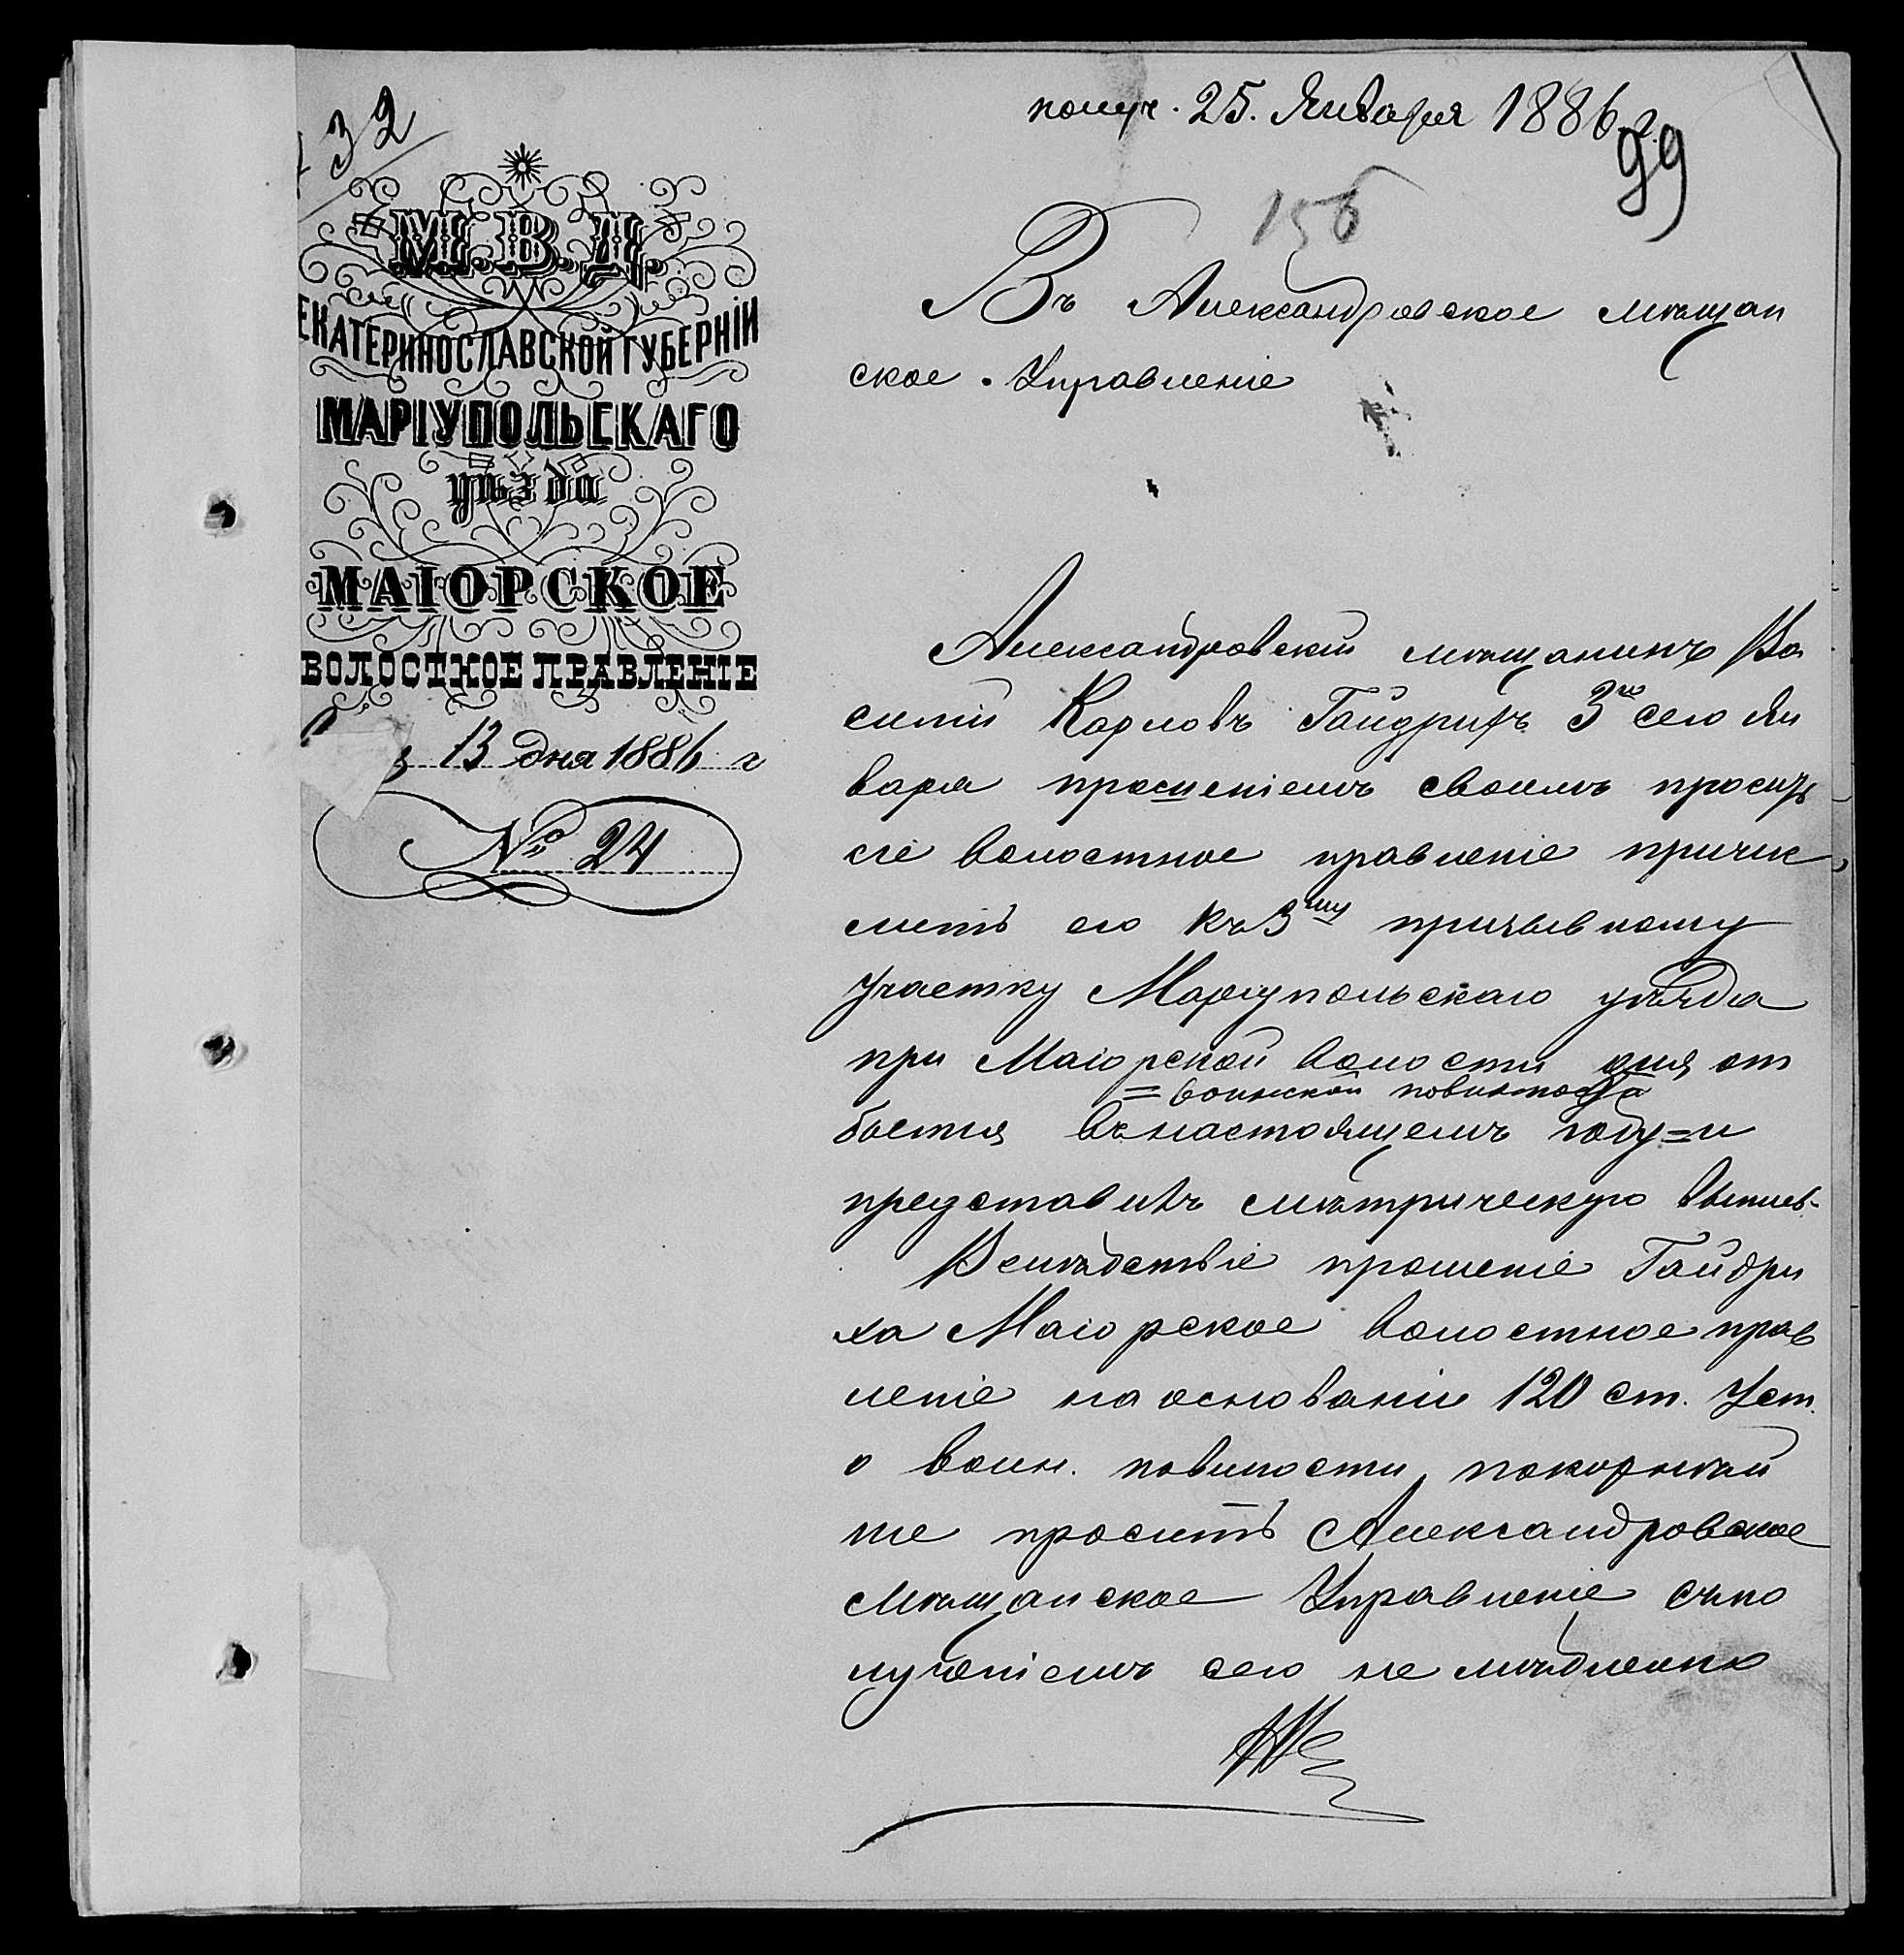 32
получ. 25. Января 1886 г.
99
156
М.В.Д.
ЕКАТЕРИНОСЛАВСКОЙ ГУБЕРНІИ
МАРІУПОЛЬСКАГО
уѣзда
МАІОРСКОЕ
ВОЛОСТНОЕ ПРАВЛЕНІЕ
13 дня 1886 г
№ 24
Въ Александровское мѣщан
ское Управленіе
Александровскій мѣщанинъ Ва
силій Карловъ Гайдрихъ 3го сего Ян
варя прошеніемъ своимъ проситъ
сіе волостное правленіе причис
лить его къ 3му призывному
участку Маріупольскаго уѣзда
при Маіорской волости для от
= воинской повинности
бытія въ настоящемъ году = и
представилъ мѣтрическую выпись.
Вслѣдствіе прошеніе Гайдри
ха Маіорское волостное прав
леніе на основаніи 120 ст. Уст.
о воин. повиности, покорнѣй
ше проситъ Александровское
Мѣщанское Управленіе съ по
лученіемъ сего не мѣдленно